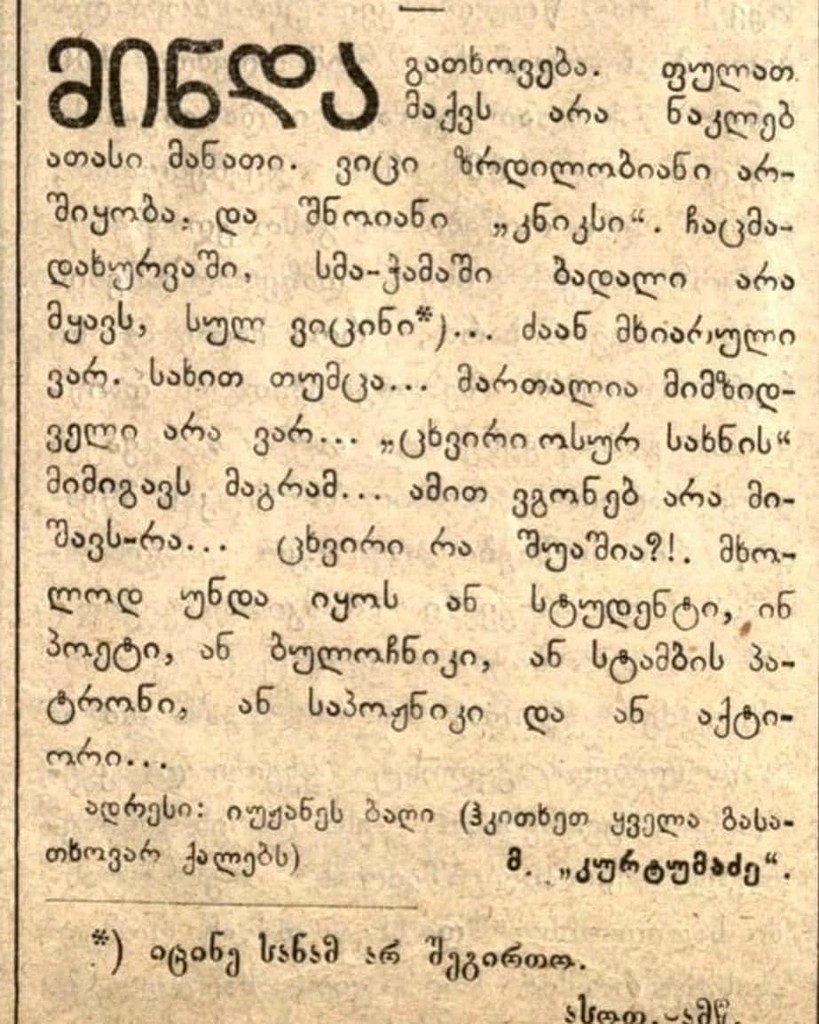 მინდა გათხოვება. ფულათ
მაქვს არა ნაკლებ
ათასი მანათი. ვიცი ზრდილობიანი არ-
შიყობა. და შნოიანი „კნიკსი“. ჩაცმა-
დახურვაში, სმა-ჭამაში ბადალი არა
მყავს, სულ ვიცინი*)... ძაან მხიარული
ვარ. სახით თუმცა... მართალია მიმზიდ-
ველი არა ვარ... „ცხვირი ოსურ სახნის“
მიმიგავს მაგრამ... ამით ვგონებ არა მი-
შავს-რა... ცხვირი რა შუაშია?!. მხო-
ლოდ უნდა იყოს ან სტუდენტი, ინ
პოეტი, ან ბულოჩნიკი, ან სტამბის პა-
ტრონი, ან საპოჟნიკი და ან აქტი-
ორი...
ადრესი: იუჟანეს ბაღი (ჰკითხეთ ყველა გასა-
თხოვარ ქალებს) მ. „კურტუმაძე“.
*) იცინე სანამ არ შეგირთო.